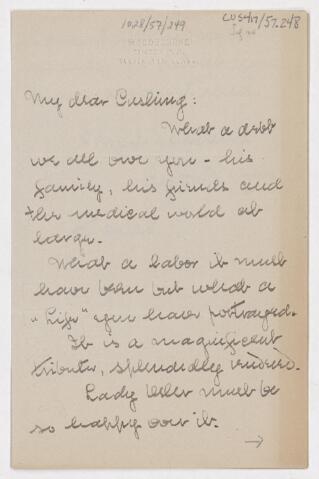 1028/57/249
CUS417/57.248
My dear Cushing:
What a debt
we all owe you - his
family, his friends and
the medical world at
large.
What a labor it must
have been but what a
"Life" you have portrayed.
It is a magnificent
tribute, splendidly
Lady Osler must be
so happy over it.
→